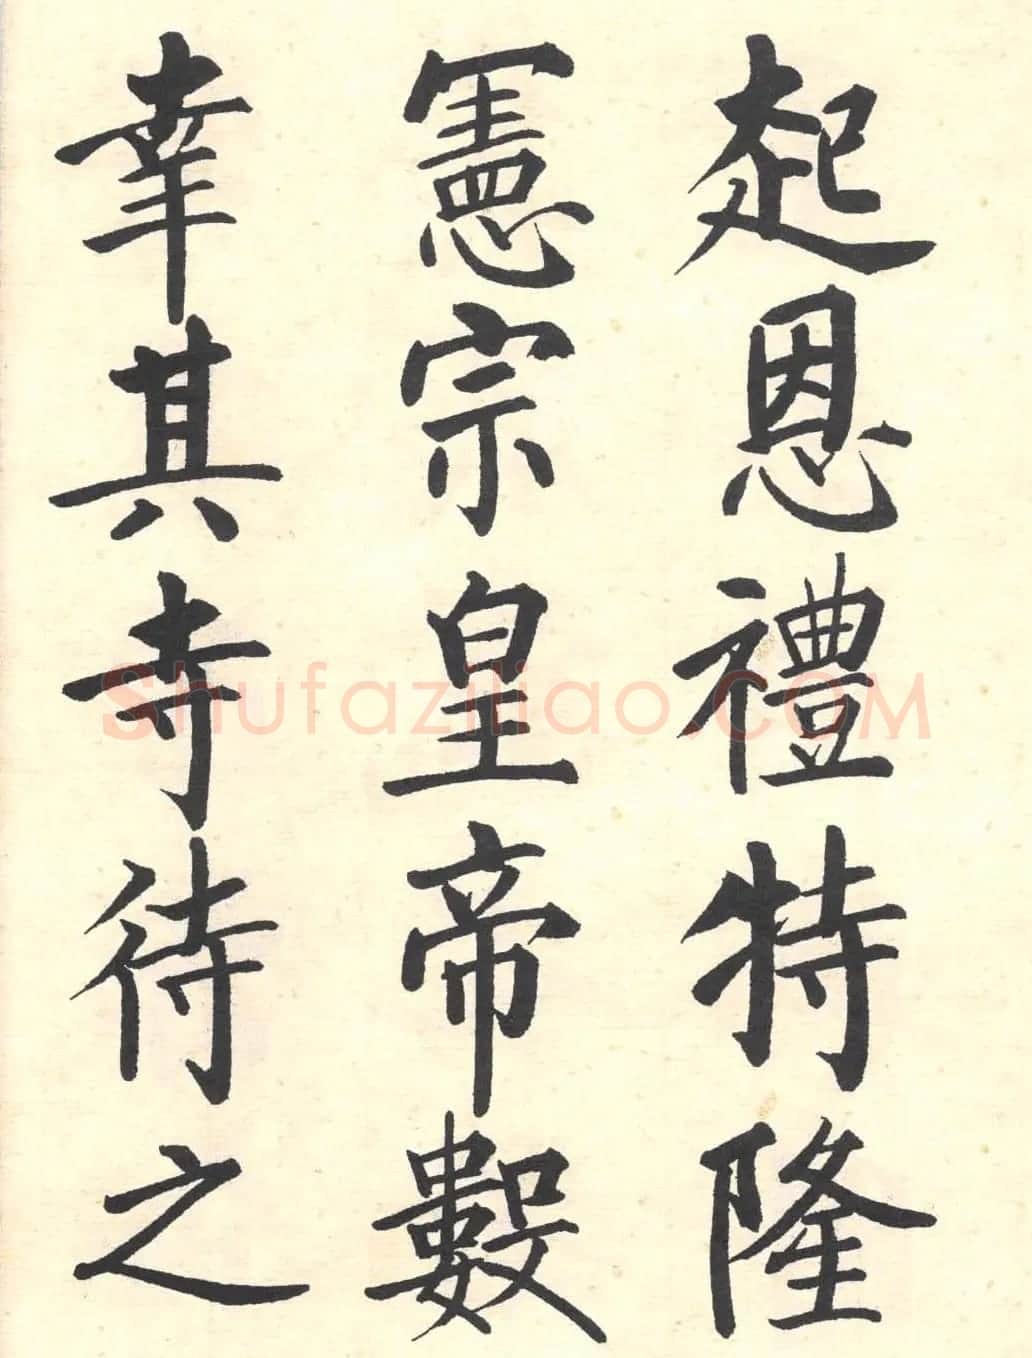 起恩禮特隆
憲宗皇帝數
幸其寺待之
Shufaziliao.com